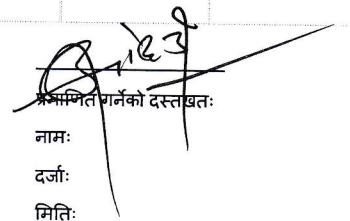 प्रमाणित गर्नेको दस्तखतः
नामः
दर्जाः
मितिः